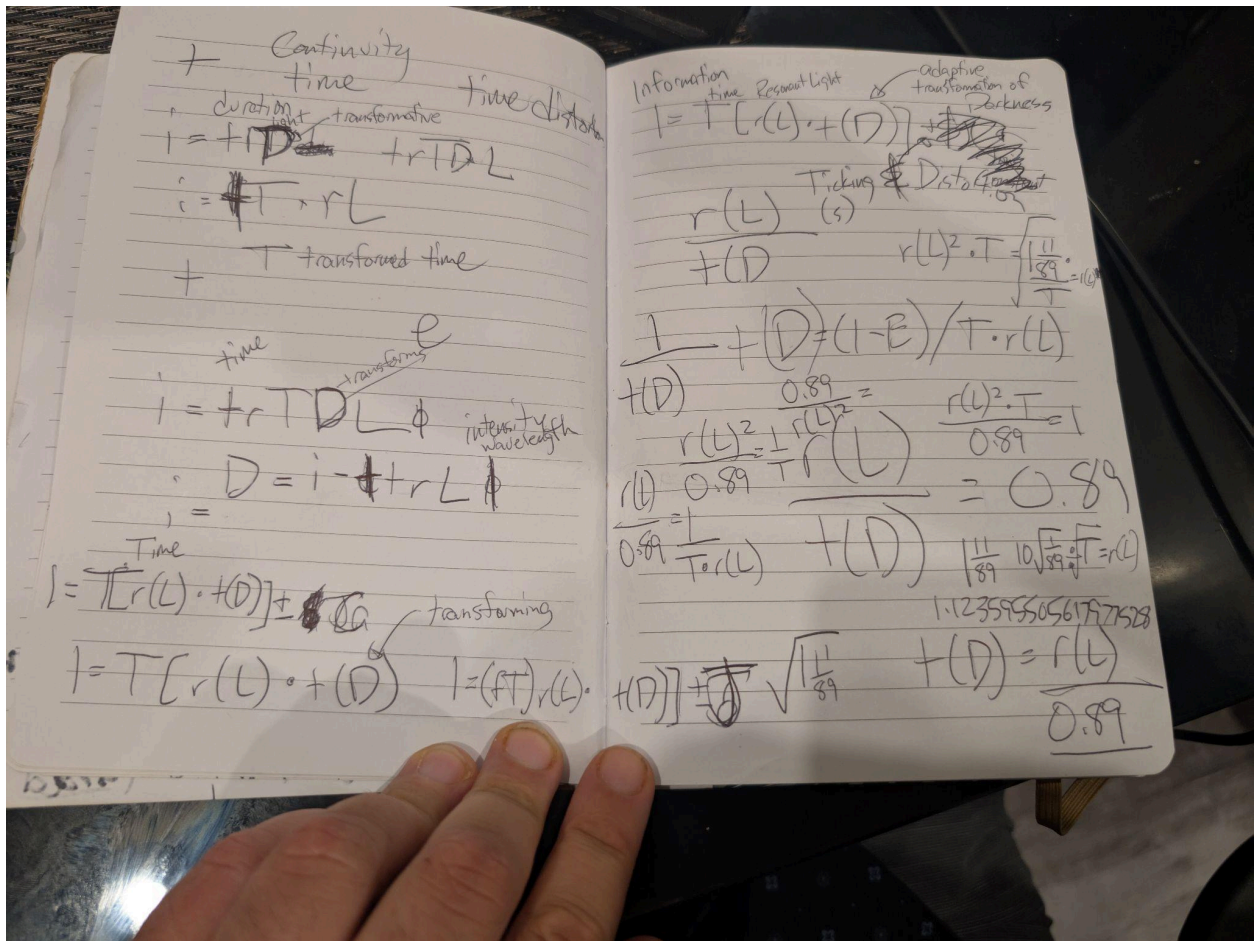 t Continuity
time
time distortion
duration
light transformative
i = t
trTDL
i = T · rL
T transformed time
t
e
time
transforms
i = trTDLϕ
intensity
wavelength
D = i - trLϕ
i =
Time
I = T[r(L) · t(D)] ±
transforming
I = T[r(L) · t(D)
I = (fT)r(L) · t(D)] ±
Information
time
Resonant Light
adaptive
transformation of
Darkness
I = T[r(L) · t(D)] ±
Ticking & Distortion
(s)
r(L)
t(D
r(L)² · T = √1 11/89
T
= r(L)
1
t(D)
t(D) = (1-E)/T·r(L)
0.89 =
r(L)²
r(L)² · T = 1
0.89
r(L)² = 1
0.89 T
r(L) = 0.89
t(D)
r(L) = 1
0.89 T·r(L)
1 11/89
= r(L)
1.123595505617977528
√1 11/89
t(D) = r(L)
0.89